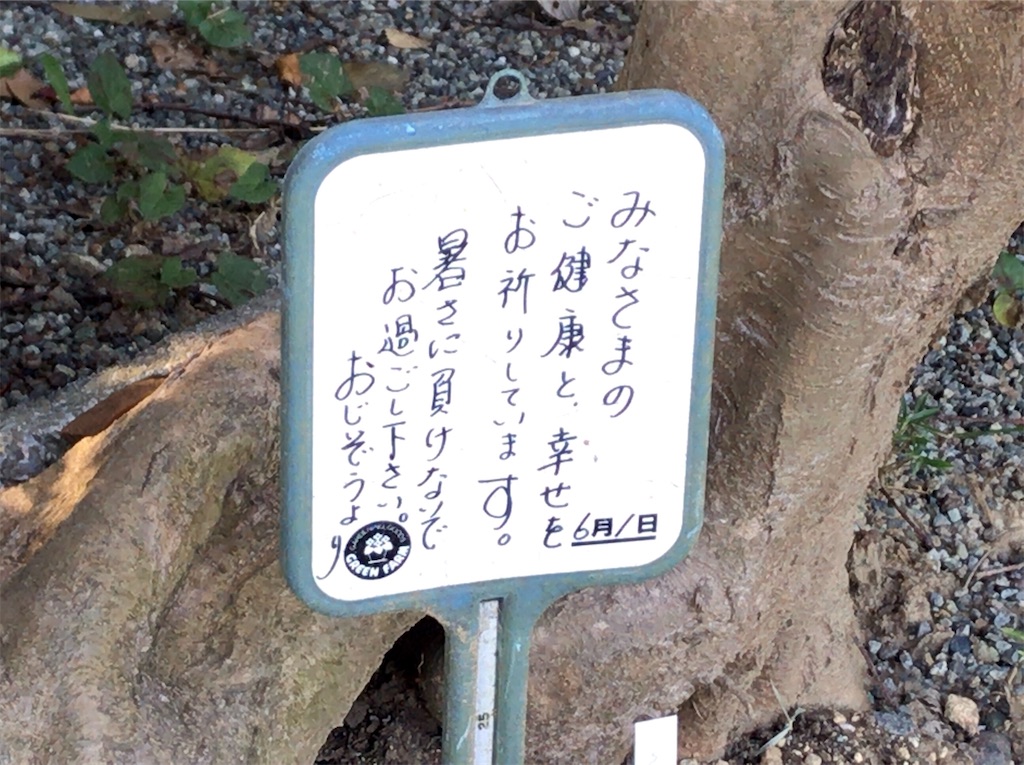 みなさまの
ご健康と、幸せを
お祈りしています。
暑さに負けないで
お過ごし下さい。
おじぞうより
6月1日
GREEN FARM
25